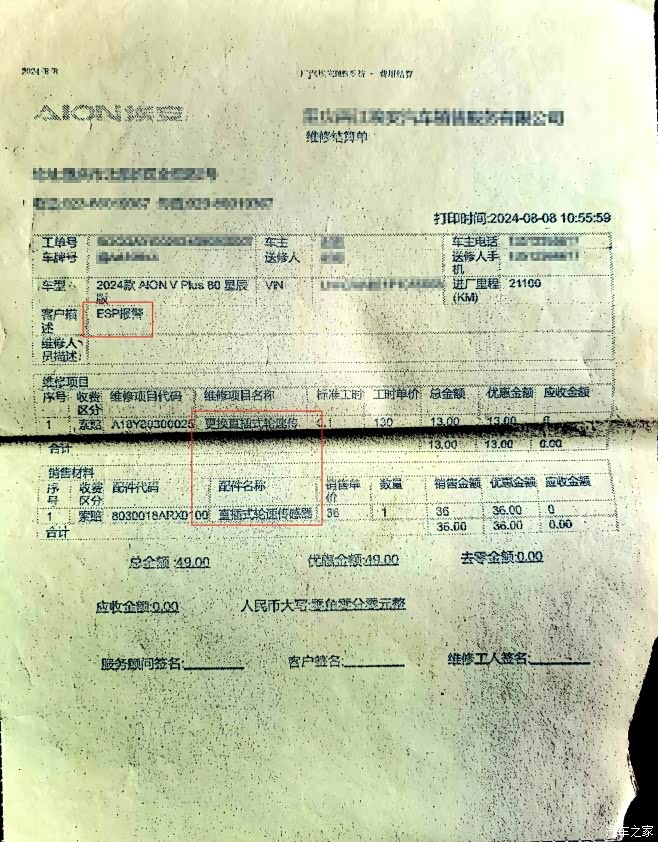 2024 8 8
费用结算
AION埃安
汽车销售服务有限公司
维修结算单
打印时间:2024-08-08 10:55:59
工单号 车主 车主电话
车牌号 送修人 送修人手机
车型 2024款 AION V Plus 80 星辰版 VIN 进厂里程(KM) 21100
客户描述 ESP报警
维修人员描述:
维修项目
序号 收费区分 维修项目代码 维修项目名称 标准工时 工时单价 总金额 优惠金额 应收金额
1 索赔 A18Y80300025 更换直插式轮速传 0.1 130 13.00 13.00 0
合计 13.00 13.00 0.00
销售材料
序号 收费区分 配件代码 配件名称 销售单价 数量 销售金额 优惠金额 应收金额
1 索赔 8030018ARX0100 直插式轮速传感器 36 1 36 36.00 0
合计 36.00 36.00 0.00
总金额:49.00 优惠金额:49.00 去零金额:0.00
应收金额:0.00 人民币大写:零角零分零元整
服务顾问签名: 客户签名: 维修工人签名:
汽车之家